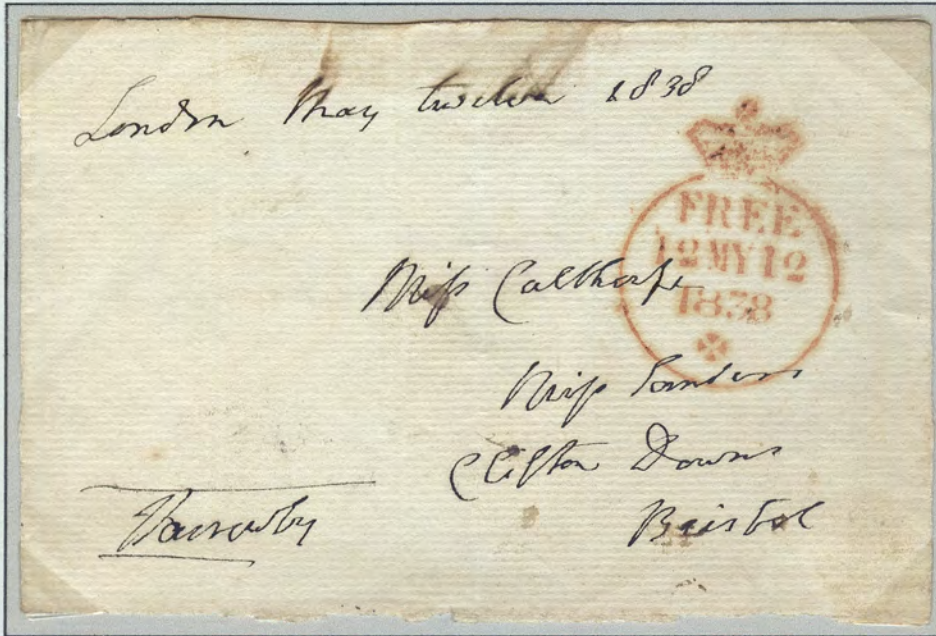 London May twelve 1838
FREE
12 MY 12
1838
Miss Calthorpe
Miss
Clifton Downs
Bristol
Harrowby